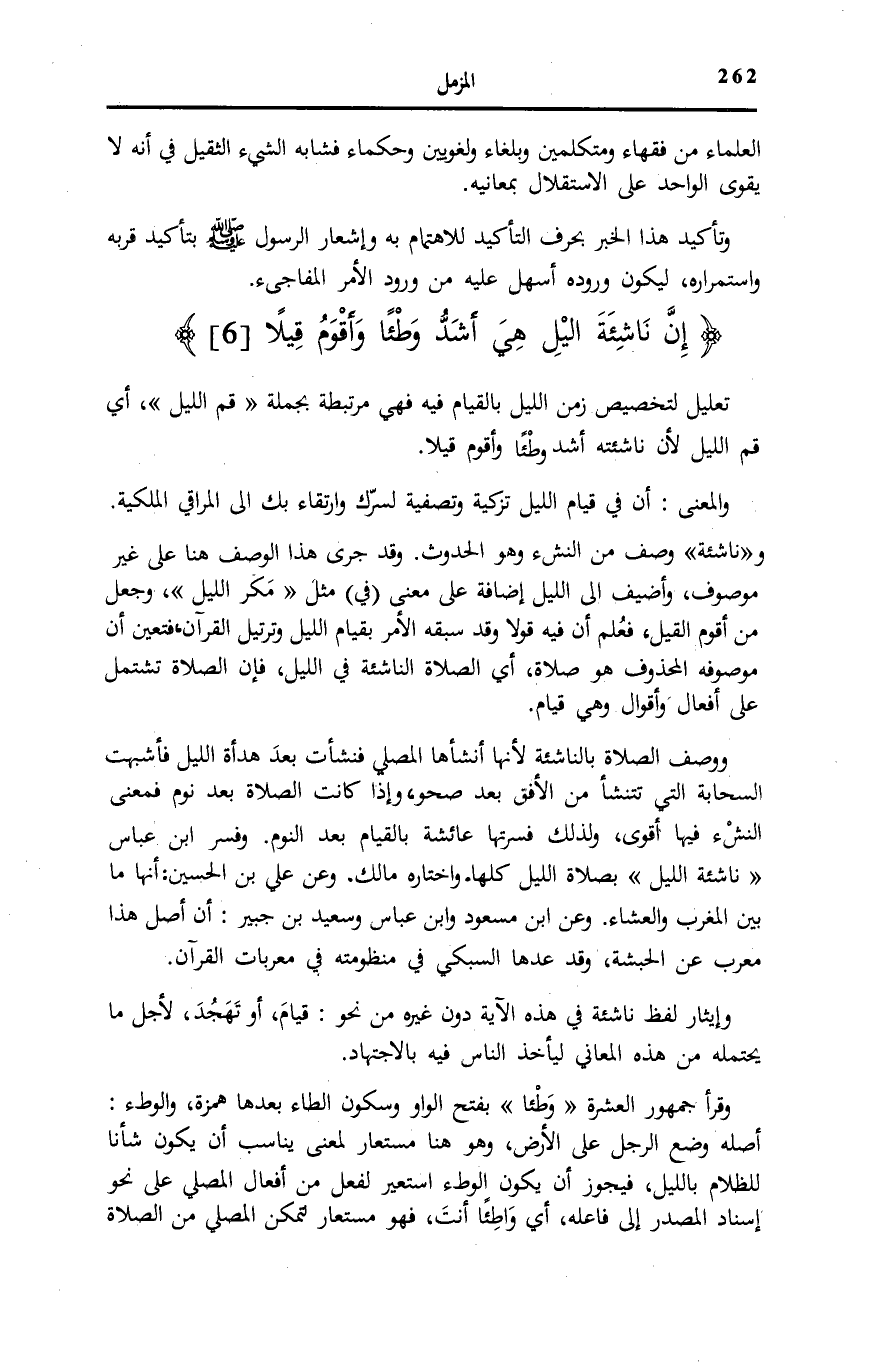 262
المزمل
العلماء من فقهاء ومتكلمين وبلغاء ولغويين وحكماء فشابه الشيء الثقيل في أنه لا
يقوى الواحد على الاستقلال بمعانيه.
وتأكيد هذا الخبر بحرف التأكيد للاهتمام به وإشعار الرسول ﷺ بتأكيد قربه
واستمراره، ليكون وروده أسهل عليه من ورود الأمر المفاجىء.
﴿ إِنَّ نَاشِئَةَ اليْلِ هِيَ أَشَدُّ وَطْئًا وَأَقْوَمُ قِيلًا [6] ﴾
تعليل لتخصيص زمن الليل بالقيام فيه فهي مرتبطة بجملة « قم الليل »، أي
قم الليل لأن ناشئته أشد وطْئًا وأقوم قيلا.
والمعنى : أن في قيام الليل تزكية وتصفية لسرّك وارتقاء بك الى المراقي الملكية.
و«ناشئة» وصف من النشء وهو الحدوث. وقد جرى هذا الوصف هنا على غير
موصوف، وأضيف الى الليل إضافة على معنى (في) مثلَ « مَكَر الليل »، وجعل
من أقوم القيل، فعُلم أن فيه قولا وقد سبقه الأمر بقيام الليل وترتيل القرآن،فتعين أن
موصوفه المحذوف هو صلاة، أي الصلاة الناشئة في الليل، فإن الصلاة تشتمل
على أفعال وأقوال وهي قيام.
ووصف الصلاة بالناشئة لأنها أنشأها المصلي فنشأت بعدَ هدأة الليل فأشبهت
السحابة التي تتنشأ من الأفق بعد صحو،وإذا كانت الصلاة بعد نوم فمعنى
النشْء فيها أقوى، ولذلك فسرتها عائشة بالقيام بعد النوم. وفسر ابن عباس
« ناشئة الليل » بصلاة الليل كلها.واختاره مالك. وعن علي بن الحسين:أنها ما
بين المغرب والعشاء. وعن ابن مسعود وابن عباس وسعيد بن جبير : أن أصل هذا
معرب عن الحبشة، وقد عدها السبكي في منظومته في معربات القرآن.
وإيثار لفظ ناشئة في هذه الآية دون غيره من نحو : قيامَ، أو تَهَجُدَ، لأجل ما
يحتمله من هذه المعاني ليأخذ الناس فيه بالاجتهاد.
وقرأ جمهور العشرة « وَطْئا » بفتح الواو وسكون الطاء بعدها همزة، والوطء :
أصله وضع الرجل على الأرض، وهو هنا مستعار لمعنى يناسب أن يكون شأنا
للظلام بالليل، فيجوز أن يكون الوطء استعير لفعل من أفعال المصلي على نحو
إسناد المصدر إلى فاعله، أي وَاطِئًا أنتَ، فهو مستعار لتمكن المصلي من الصلاة